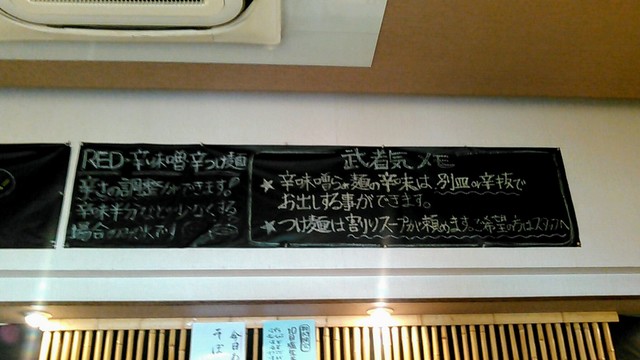 RED・辛味噌・辛つけ麺
辛さの調整ができます。
辛味半分など少なくする
場合
武者気メモ
★辛味噌らぁ麺の辛味は、別皿の辛抜で
お出しする事ができます。
★つけ麺は割りスープが頼めます。ご希望の方はスタッフへ